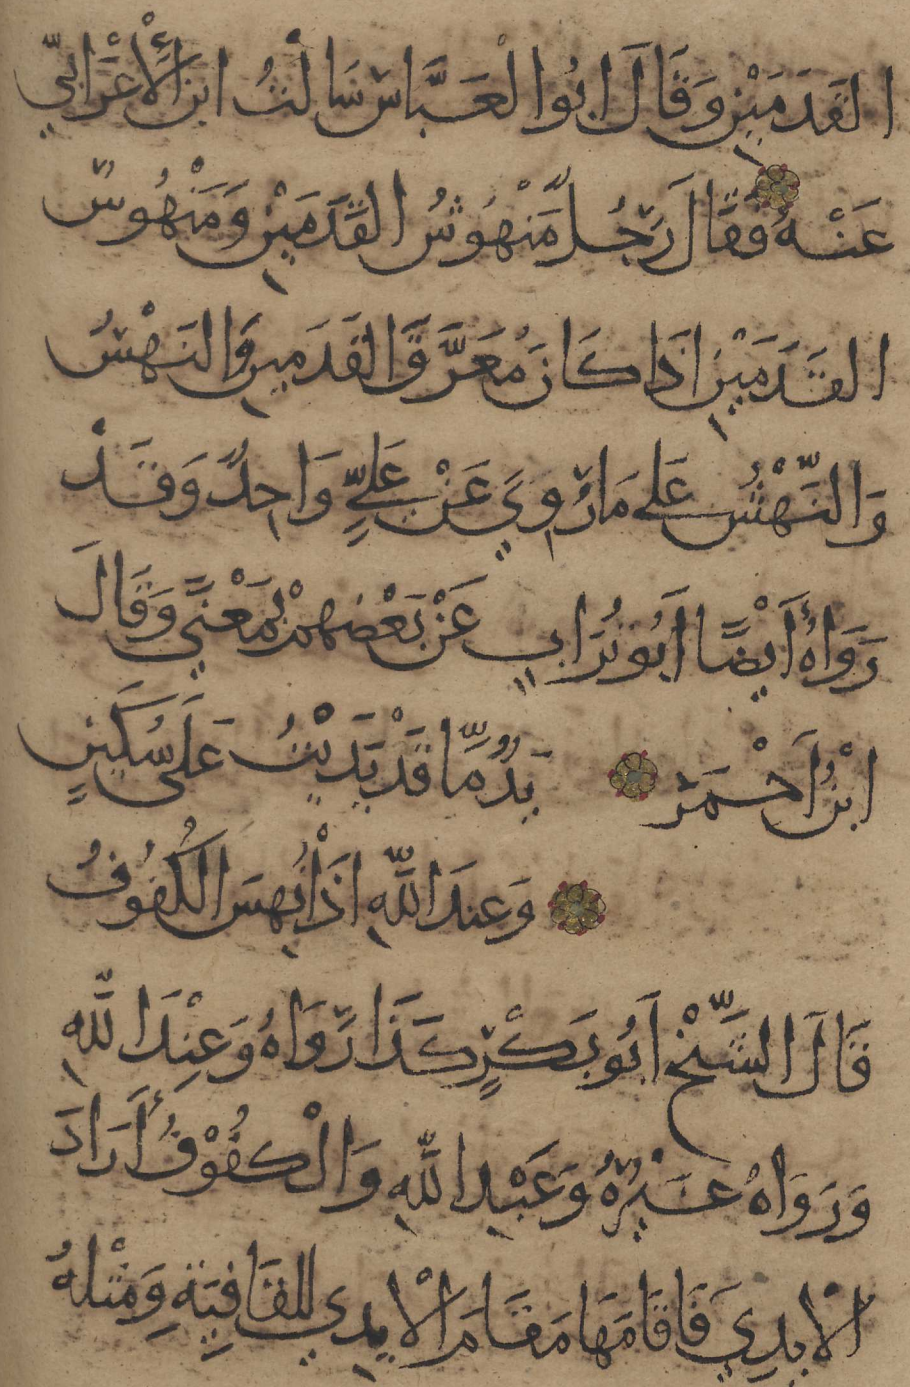 القَدَمَيْنِ وَقَالَ ابُوا لْعَبَّاسِ سَالْتُ ابنَ الْأَعْرَابيِّ
عَنْهُ فَقَالَ رَجُلٌ مَنْهُوشُ القَدَمَيْنِ وَمَنْهُوسُ
القَدَمَيْنِ اذَا كَانَ مُعَرَّقَ القَدَمَينِ وَالنَهْسُ
وَالنَّهْشُ عَلى مَا رُوِيَ عَنْ عَليٍّ وَاحِدٌ وَقَدْ
رَوَاهُ أَيْضًا أَبُو تُرَابٍ عَنْ بَعْضِهمْ بمَعْنًي وَقَالَ
ابْنُ أَحْمَرَ بَدُمَّا قَدْ بَدَيْتُ عَلَى سُكَينٍ
وَعندَ اللَّهِ اذَا نُهسَ الكُفُوفُ
قَالَ الشَّيْخُ أَبُو بَكْرٍ كَذَا رَوَاهُ وَعِنْدَ اللَّهِ
وَرَوَاهُ غَيْرُهُ وَعَبْدِ اللَّهِ وَالْكفُوْفُ أَرَادَ
الْأَيدِيَ فَاقَامَهَا مَقَامَ الْأَيدِي للقَافِيَةِ وَمْثلهُ